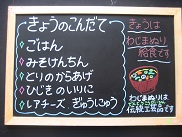 きょうのこんだて
ごはん
みそけんちん
とりのからあげ
ひじきのいりに
レアチーズ ぎゅうにゅう
きょうは
わじまぬり
給食です
わじまぬりは
伝統工芸品です